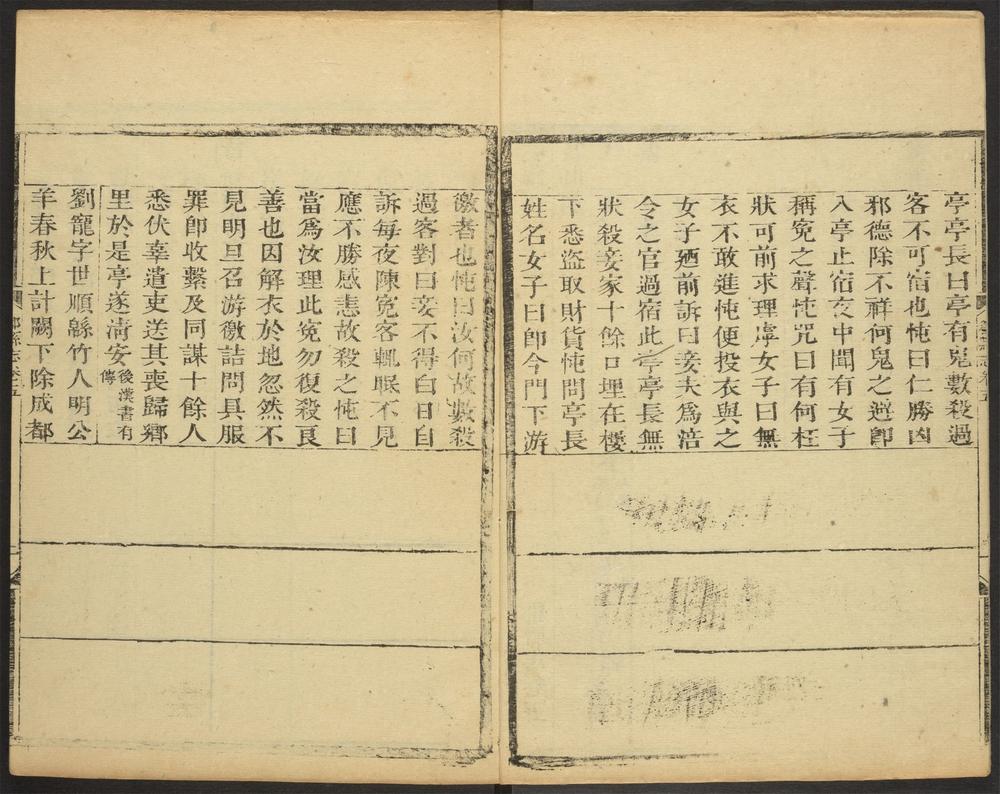 亭亭長曰亭有鬼數殺過
客不可宿也忳曰仁勝凶
邪德除不祥何鬼之避卽
入亭止宿夜中聞有女子
稱寃之聲忳咒曰有何枉
狀可前求理虖女子曰無
衣不敢進忳便投衣與之
女子廼前訴曰妾夫爲涪
令之官過宿此亭亭長無
狀殺妾家十餘口埋在樓
下悉盜取財貨忳問亭長
姓名女子曰卽今門下游
徼者也忳曰汝何故數殺
過客對曰妾不得白日自
訴每夜陳寃客輒眠不見
應不勝感恚故殺之忳曰
當爲汝理此寃勿復殺良
善也因解衣於地忽然不
見明旦召游徼詰問具服
罪卽收繫及同謀十餘人
悉伏辜遣吏送其喪歸鄉
里於是亭遂淸安後漢書有傳
劉寵字世順緜竹人明公
羊春秋上計闕下除成都